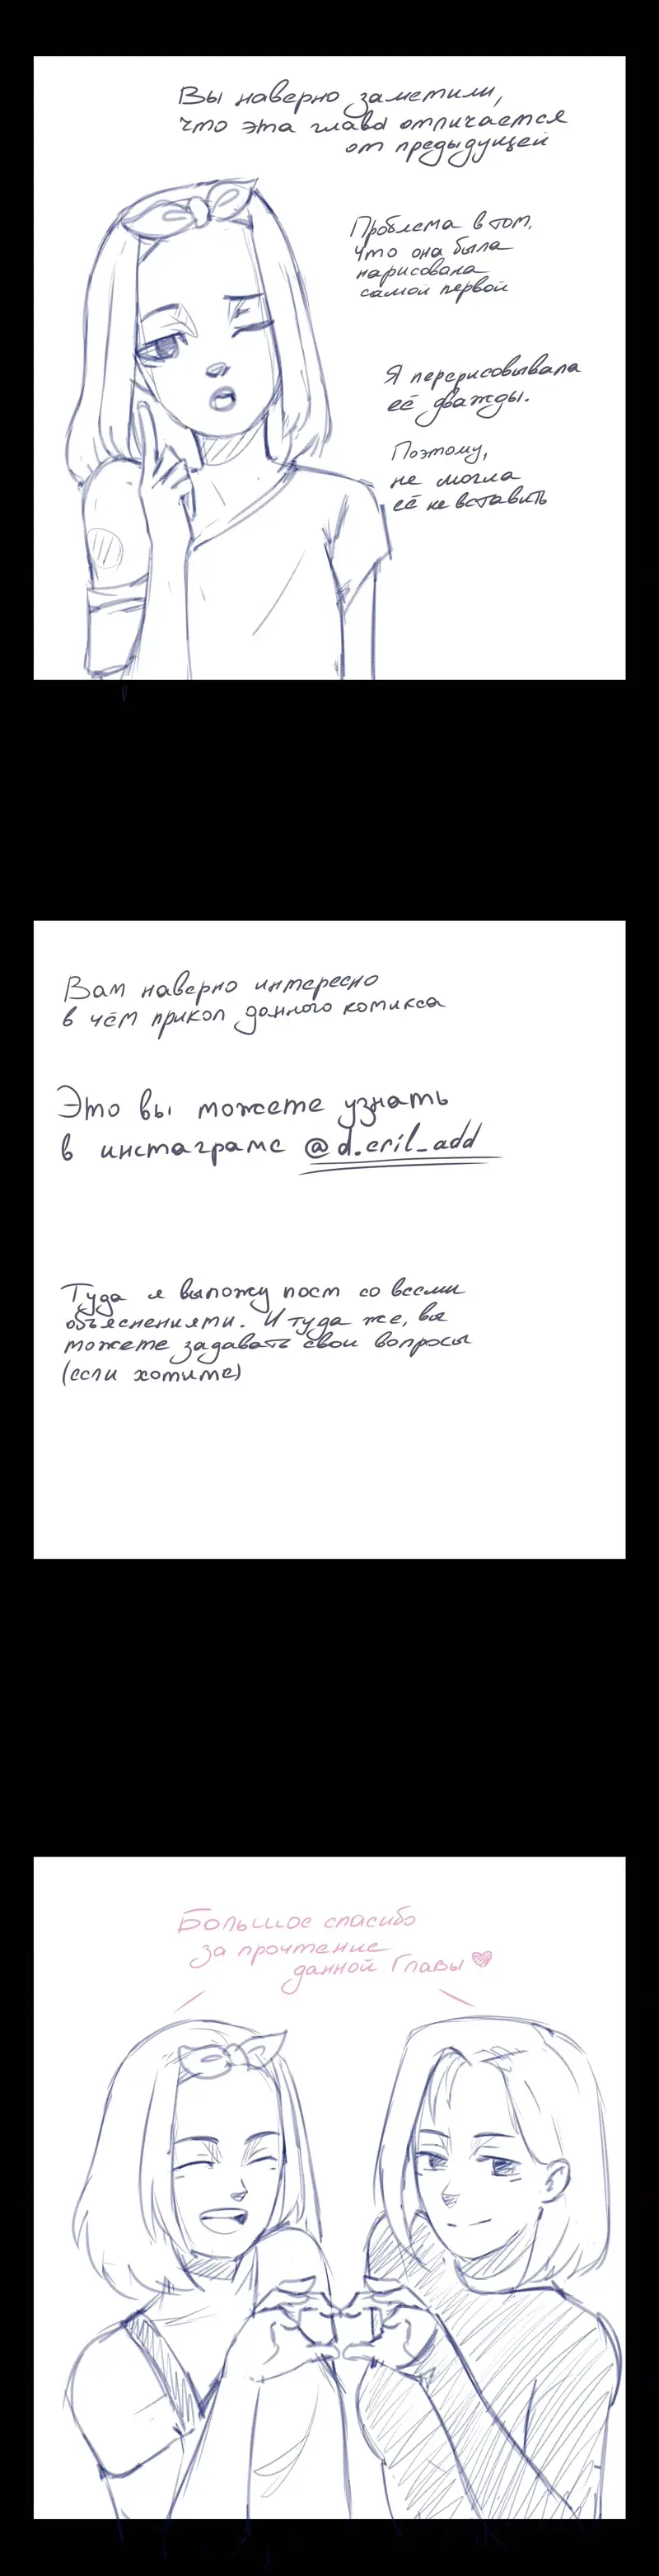 Вы наверно заметили,
что эта глава отличается
от предыдущей
Проблема в том,
что она была
нарисована
самой первой
Я перерисовывала
её дважды.
Поэтому,
не могла
её не вставить
Вам наверно интересно
в чём прикол данного комикса
Это вы можете узнать
в инстаграме @d.eril_add
Туда я выложу пост со всеми
объяснениями. И туда же, вы
можете задавать свои вопросы
(если хотите)
Большое спасибо
за прочтение
данной главы